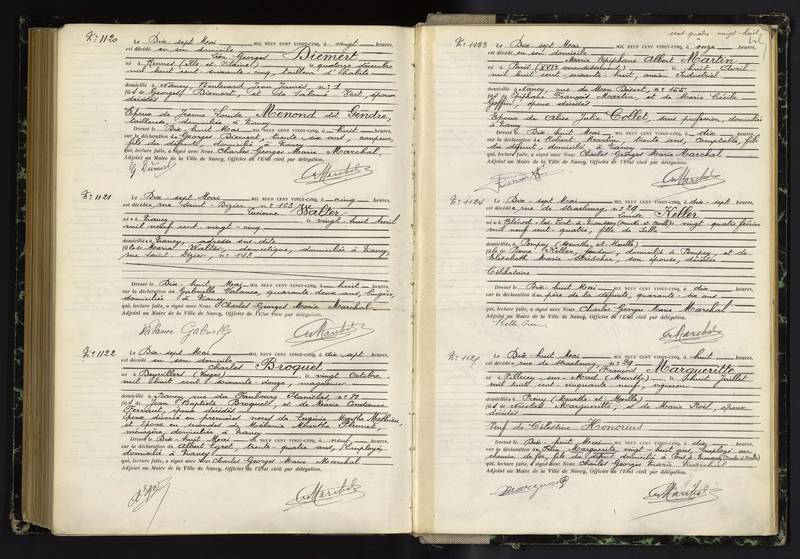 N° 1120
Le Dix-sept Mai MIL NEUF CENT VINGT-CINQ, à vingt heures,
est décédé en son domicile
Léon Georges Diemert
né à Rennes (Ille et Vilaine) le quatorze décembre
mil huit cent soixante-cinq, tailleur d'habits
domicilié à Nancy, Boulevard Jean Jaurès, n° 1
fils de Georges Diemert, et de Salomé Veit, époux
décédés
Epoux de Jeanne Louise Menond dit Gendre,
tailleuse, domiciliée à Nancy
Dressé le Dix-huit Mai MIL NEUF CENT VINGT-CINQ, à huit heures,
sur la déclaration de Georges Diemert, trente-six ans, coupeur,
fils du défunt, domicilié à Nancy
qui, lecture faite, a signé avec Nous, Charles Georges Marie Marchal,
Adjoint au Maire de la Ville de Nancy, Officier de l'Etat civil par délégation.
G Diemert
N° 1121
Le Dix-sept Mai MIL NEUF CENT VINGT-CINQ, à cinq heures,
est décédée rue Saint Dizier, n° 163
Lucienne Walter
née à Nancy le vingt-huit Avril
mil neuf cent vingt-cinq
domiciliée à Nancy, adresse sus-dite
fille de Maria Walter, domestique, domiciliée à Nancy
rue Saint Dizier, n° 163
Dressé le Dix-huit Mai MIL NEUF CENT VINGT-CINQ, à huit heures,
sur la déclaration de Gabrielle Valance, quarante-deux ans,
domiciliée à Nancy
qui, lecture faite, a signé avec Nous, Charles Georges Marie Marchal
Adjoint au Maire de la Ville de Nancy, Officier de l'Etat civil par délégation.
Valance Gabrielle
N° 1122
Le Dix-sept Mai MIL NEUF CENT VINGT-CINQ, à dix-sept heures,
est décédé en son domicile
Charles Broquet
né à (Vosges) le vingt Octobre
mil huit cent soixante-douze, magasinier
domicilié à Nancy, rue du Faubourg Stanislas, n°
fils de Jean Baptiste Broquet, et de Marie Constance
époux décédés
Epoux divorcé en premières noces de Eugénie Marthe Mathieu,
et Epoux en secondes de Mélanie Marthe Plumet,
ménagère, domiciliée à Nancy
Dressé le Dix-huit Mai MIL NEUF CENT VINGT-CINQ, à neuf heures,
sur la déclaration de Albert trente-quatre ans, Employé,
domicilié à Nancy
qui, lecture faite, a signé avec Nous, Charles Georges Marie Marchal
Adjoint au Maire de la Ville de Nancy, Officier de l'Etat civil par délégation.
cent quatre-vingt-huit
N° 1123
Le Dix-sept Mai MIL NEUF CENT VINGT-CINQ, à onze heures,
est décédé en son domicile
Marie Epiphane Albert Martin
né à Paris (XVIe arrondissement) le huit Avril
mil huit cent soixante-huit, ancien industriel
domicilié à Nancy, rue de Mon Désert, n° 155
fils de Epiphane François Martin, et de Marie Cécile
Goffin, époux décédés
Epoux de Alice Julie Collet, sans profession, domiciliée
à Nancy
Dressé le Dix-huit Mai MIL NEUF CENT VINGT-CINQ, à dix heures,
sur la déclaration de Robert Martin, trente ans, Comptable, fils
du défunt, domicilié à Nancy
qui, lecture faite, a signé avec Nous, Charles Georges Marie Marchal
Adjoint au Maire de la Ville de Nancy, Officier de l'Etat civil par délégation.
N° 1124
Le Dix-sept Mai MIL NEUF CENT VINGT-CINQ, à dix-sept heures,
est décédée rue de Strasbourg, n° 29
Louise Keller
née à Blénod-les-Pont-à-Mousson le vingt-quatre février
mil neuf cent quatre,
domiciliée à Pompey (Meurthe et Moselle)
fille de Pierre Keller, fondeur, domicilié à Pompey, et de
Elisabeth Marie son épouse, décédée
Célibataire
Dressé le Dix-huit Mai MIL NEUF CENT VINGT-CINQ, à dix heures,
sur la déclaration du père de la défunte, quarante-six ans
qui, lecture faite, a signé avec Nous, Charles Georges Marie Marchal
Adjoint au Maire de la Ville de Nancy, Officier de l'Etat civil par délégation.
N° 1125
Le Dix-huit Mai MIL NEUF CENT VINGT-CINQ, à huit heures,
est décédé rue de Strasbourg, n° 29
François Margueritte
né à (Meurthe) le huit Juillet
mil huit cent cinquante-neuf, vigneron
domicilié à Prény (Meurthe et Moselle)
fils de Nicolas Margueritte, et de Marie Noël, époux
décédés
Veuf de Célestine Honorius
Dressé le Dix-huit Mai MIL NEUF CENT VINGT-CINQ, à dix heures,
sur la déclaration de Margueritte, vingt-huit ans, Employé au
chemin de fer, fils du défunt, domicilié à Pont-à-Mousson (Meurthe et Moselle)
qui, lecture faite, a signé avec Nous, Charles Georges Marie Marchal
Adjoint au Maire de la Ville de Nancy, Officier de l'Etat civil par délégation.